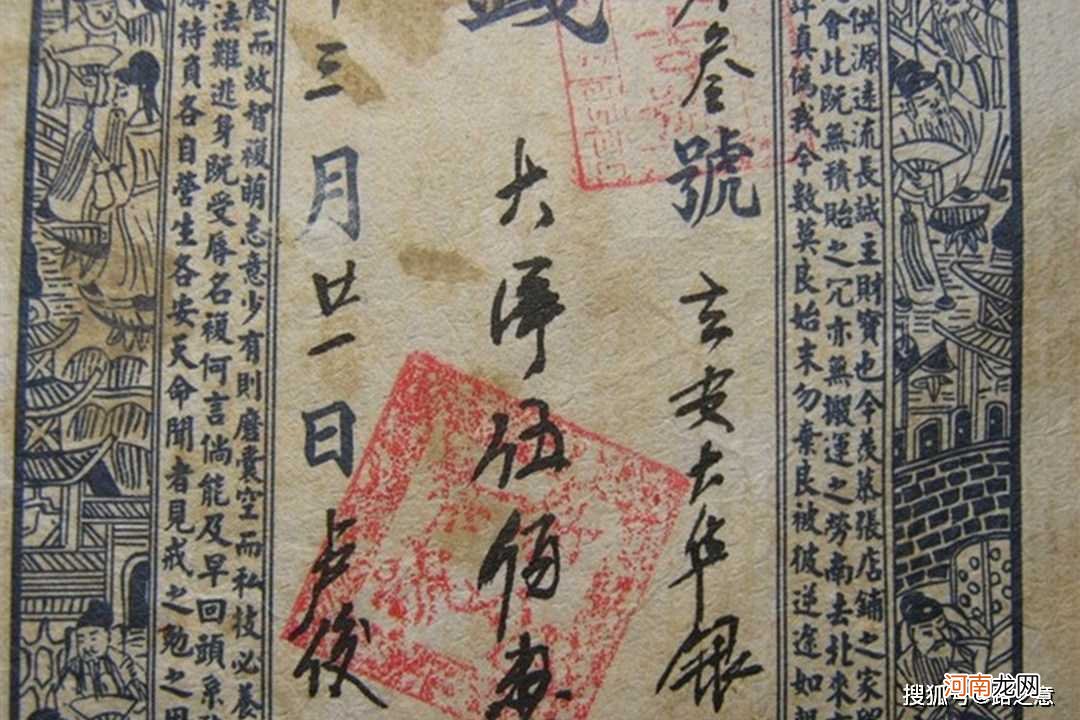 供源遠流長誠主財寶也今羨慕張店鋪之家
會此既無積貽之冗亦無搬運之勞南去北來
真偽哉今數莫良始末勿棄良被彼逆途如
叁號
大华銀
錢
大洋伍佰
三月廿一日
卢俊
而故智複萌志意少有則磨囊空而私技必
法難逃身既受辱名複何言倘能及早回頭
持負各自營生各安天命聞者見戒之勉之
搜狐号@路之意
河南龙网